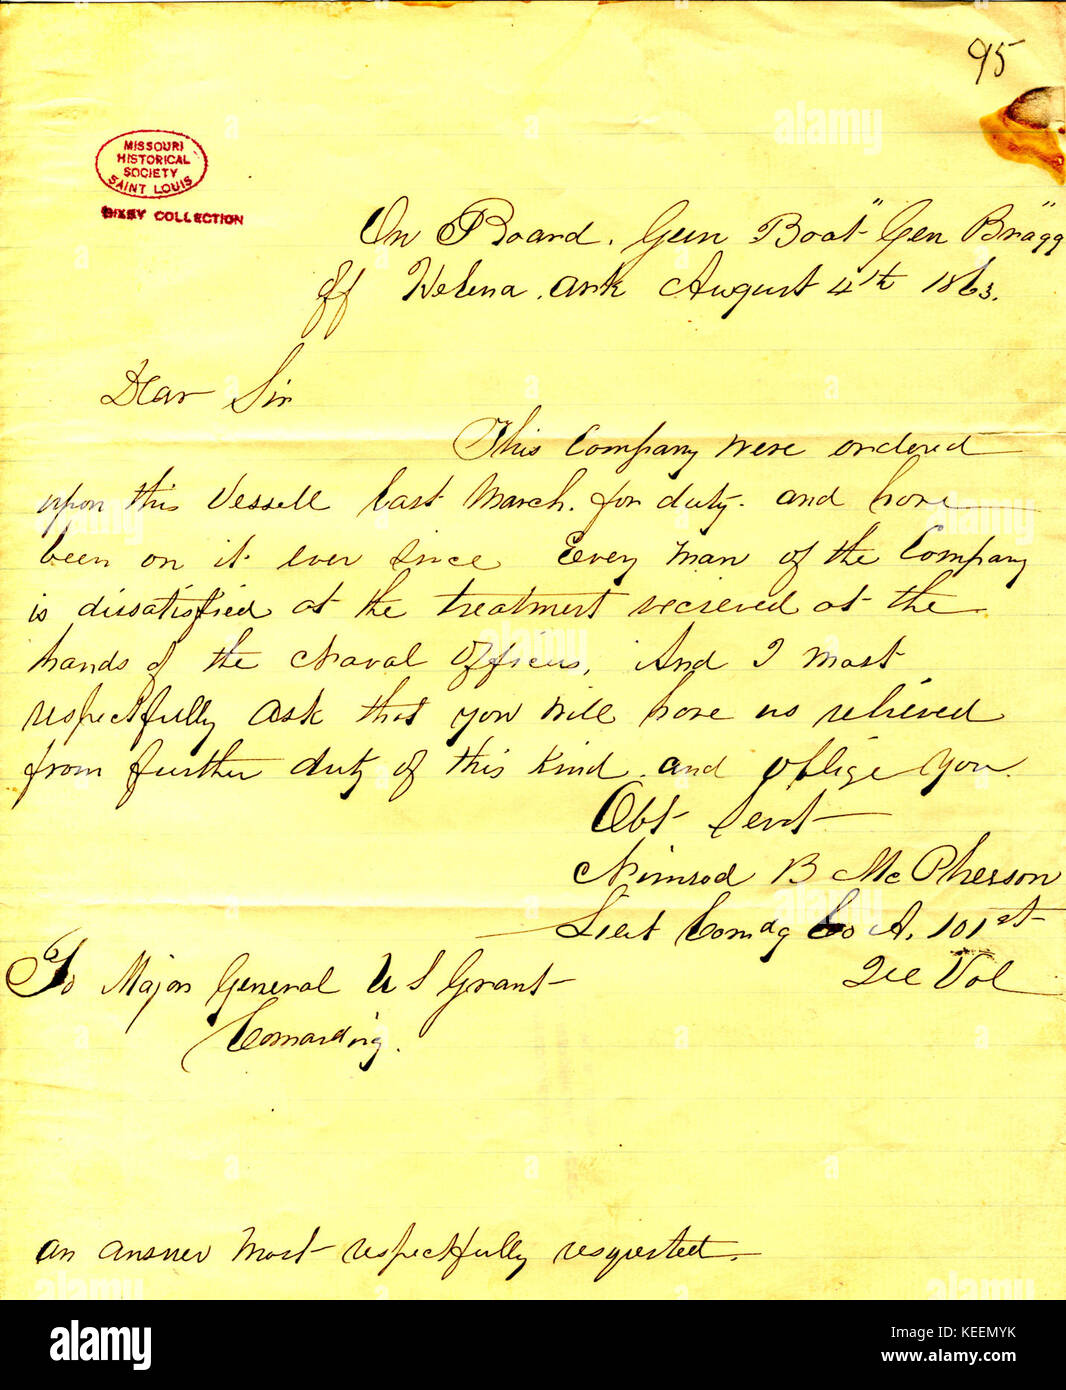 95
MISSOURI
HISTORICAL
SOCIETY
SAINT LOUIS
BIXBY COLLECTION
On Board. Gun Boat "Gen Bragg"
off Helena. Ark August 4th 1863.
Dear Sir
This Company were ordered
upon this Vessell last March. for duty. and have
been on it ever since Every man of the Company
is dissatisfied at the treatment recieved at the
hands of the Naval Officers, And I most
respectfully ask that you will have us relieved
from further duty of this kind. and oblige you.
Obt Servt
Nimrod B McPherson
Lieut Comdg Co A. 101st
Ill Vol
To Major General U S Grant
Comanding.
an answer most respectfully resquested.
alamy
Image ID: KEEMYK
www.alamy.com